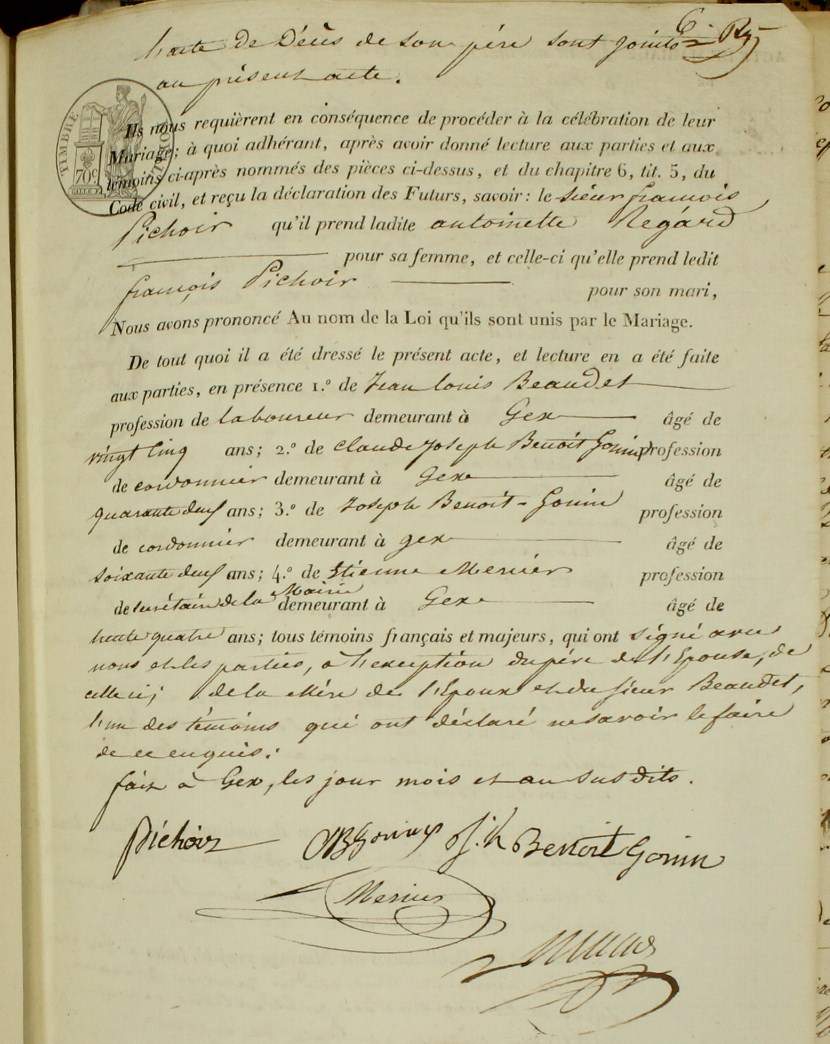 l'acte de Décès de son père sont joints
au présent acte.
TIMBRE ROYAL
70c
Ils nous requièrent en conséquence de procéder à la célébration de leur
Mariage; à quoi adhérant, après avoir donné lecture aux parties et aux
témoins ci-après nommés des pièces ci-dessus, et du chapitre 6, tit. 5, du
Code civil, et reçu la déclaration des Futurs, savoir: le sieur françois
Pichoir qu'il prend ladite antoinette Regard
pour sa femme, et celle-ci qu'elle prend ledit
françois Pichoir pour son mari,
Nous avons prononcé Au nom de la Loi qu'ils sont unis par le Mariage.
De tout quoi il a été dressé le présent acte, et lecture en a été faite
aux parties, en présence 1.º de Jean Louis Beaudet
profession de laboureur demeurant à Gex âgé de
vingt cinq ans; 2.º de Claude Joseph Benoit Gonin profession
de cordonnier demeurant à Gex âgé de
quarante deux ans; 3.º de Joseph Benoit-Gonin profession
de cordonnier demeurant à gex âgé de
soixante deux ans; 4.º de Etienne Mercier profession
de secrétaire de la Mairie demeurant à Gex âgé de
trente quatre ans; tous témoins français et majeurs, qui ont signé avec
nous et les parties, à l'exception du père de l'Epouse, de
celle ci; de la Mère de l'Epoux et du sieur Beaudet,
l'un des témoins qui ont déclaré ne savoir le faire
de ce enquis.
fait à Gex, les jour mois et an susdits.
Pichoir J.h Benoit Gonin
Mercier